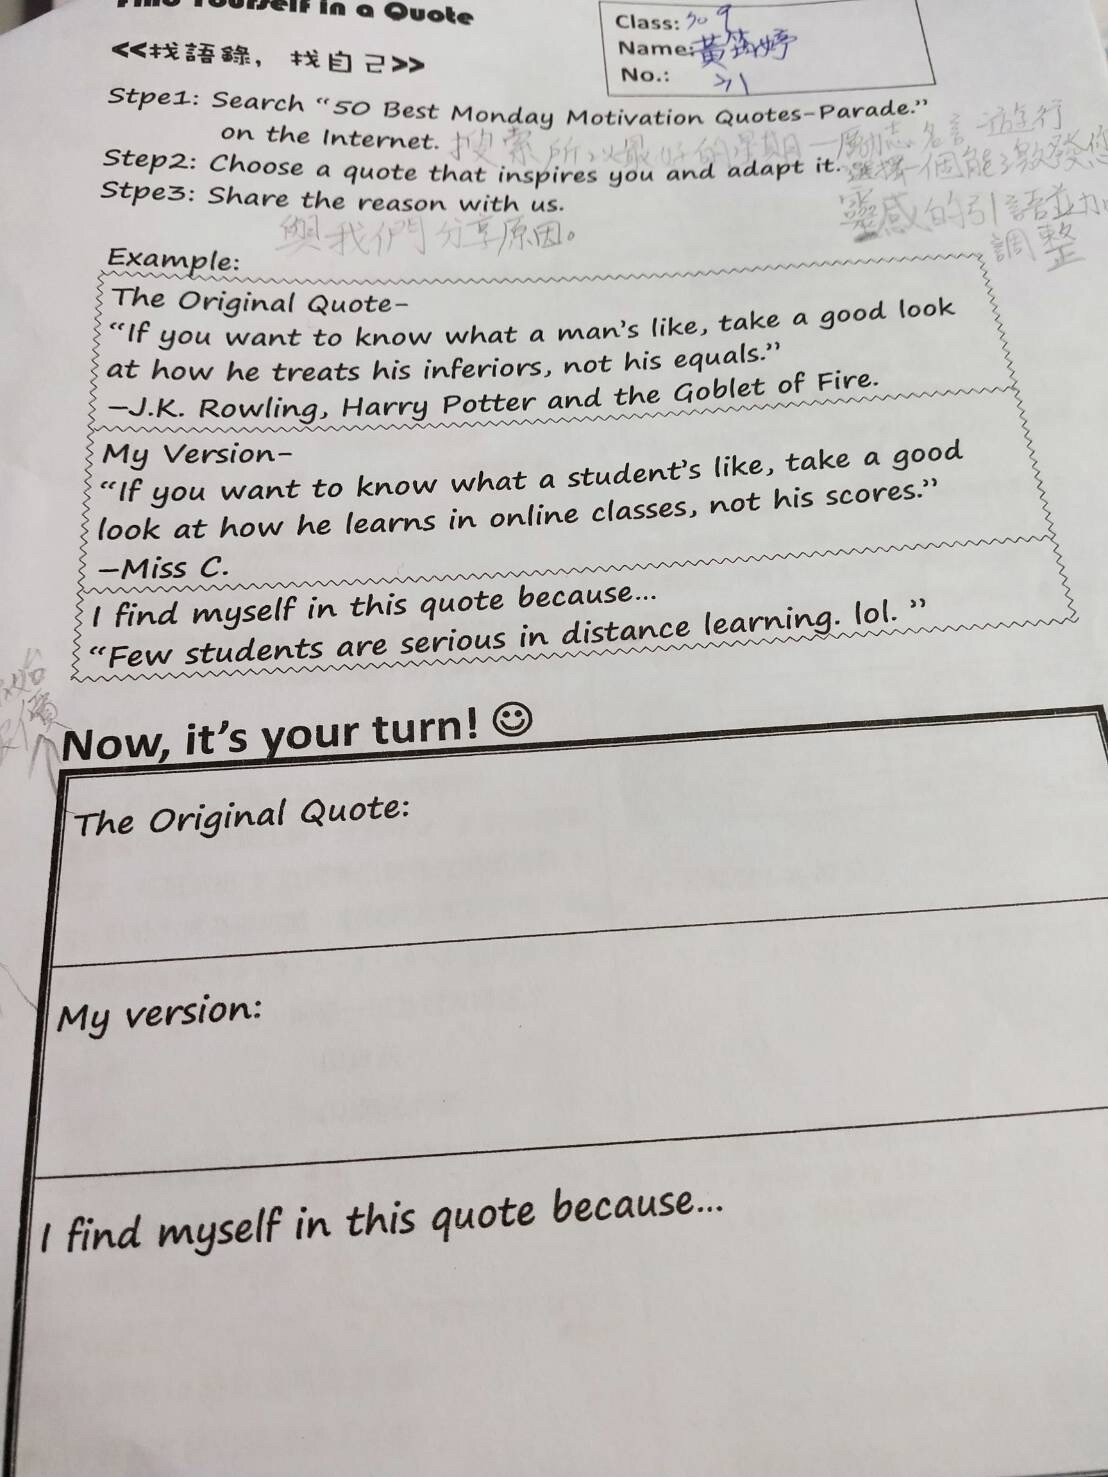 Find Yourself in a Quote
<<找語錄，找自己>>
Class: 309
Name: 黃筠婷
No.: 31
Stpe1: Search “50 Best Monday Motivation Quotes-Parade.”
on the Internet. 搜索所以最好的星期一勵志名言-遊行
Step2: Choose a quote that inspires you and adapt it. 選擇一個能激發您
靈感的引語並加
調整
Stpe3: Share the reason with us.
與我們分享原因。
Example:
The Original Quote-
“If you want to know what a man’s like, take a good look
at how he treats his inferiors, not his equals.”
—J.K. Rowling, Harry Potter and the Goblet of Fire.
My Version-
“If you want to know what a student’s like, take a good
look at how he learns in online classes, not his scores.”
—Miss C.
I find myself in this quote because...
“Few students are serious in distance learning. lol. ”
Now, it’s your turn! ☺
The Original Quote:
My version:
I find myself in this quote because...